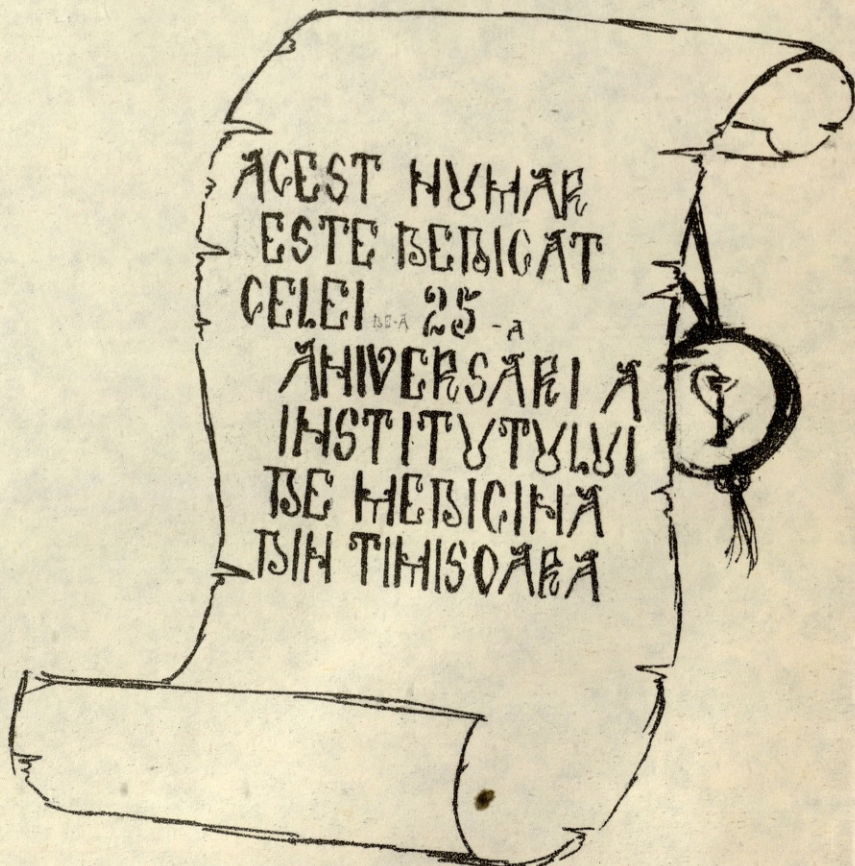 ACEST NUMAR
ESTE DEDICAT
CELEI DE-A 25-A
ANIVERSARI A
INSTITUTULUI
DE MEDICINA
DIN TIMISOARA